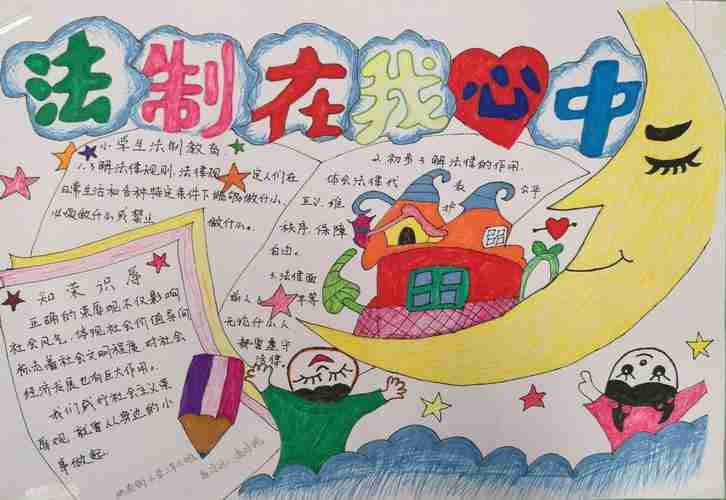 法制在我心中
小学生法制教育
1.了解法律规则,法律规定人们在
日常生活和各种特定条件下能够做什么,
必须做什么或禁止做什么。
2.初步了解法律的作用。
体会法律代表公平
正义,维护
秩序,保障
自由。
3.法律面
前人人平等
无论什么人
都要遵守
法律。
知荣识辱
正确的荣辱观不仅影响
社会风气,体现社会价值导向
标志着社会文明程度对社会
经济发展也有巨大作用。
我们践行社会主义荣
辱观,就要从身边的小
事做起.